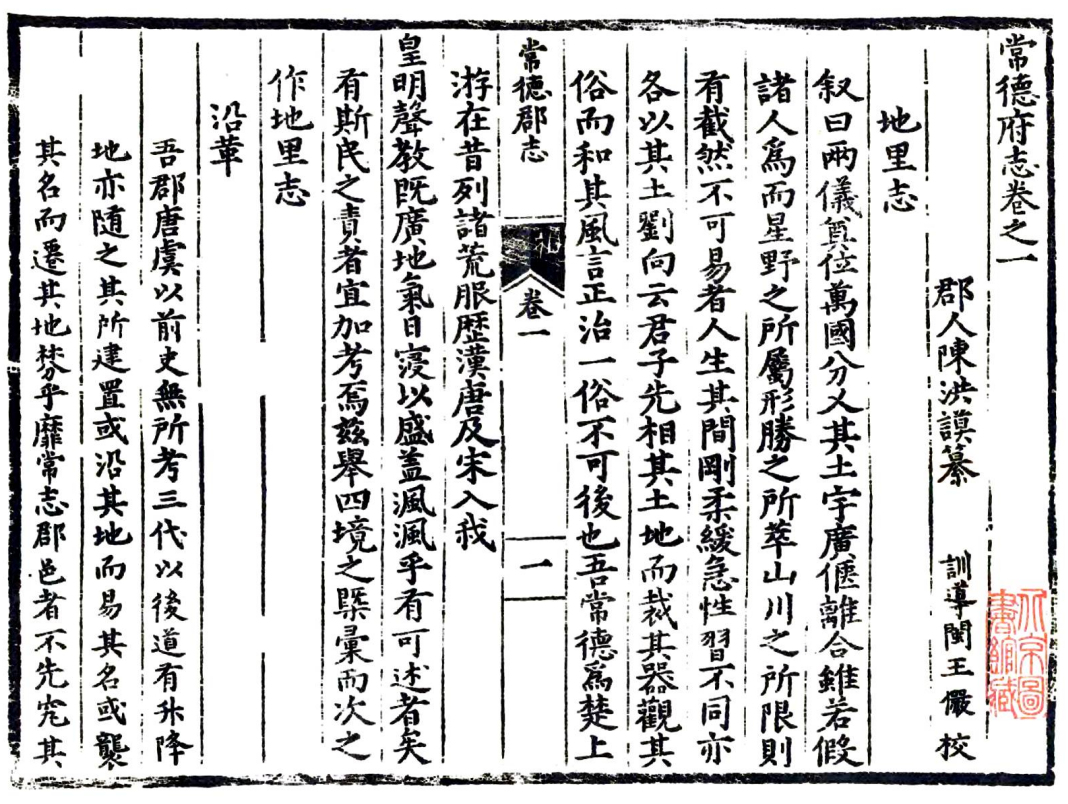 常德府志卷之一
郡人陳洪謨纂 訓導閩王儼校
地里志
叙曰兩儀奠位萬國分乂其土宇廣偃離合雖若假
諸人爲而星野之所屬形勝之所萃山川之所限則
有截然不可易者人生其間剛柔緩急性習不同亦
各以其土劉向云君子先相其土地而裁其器觀其
俗而和其風言正治一俗不可後也吾常德爲楚上
常德郡志 卷一 一
游在昔列諸荒服歷漢唐及宋入我
皇明聲教既廣地氣日寖以盛盖渢渢乎有可述者矣
有斯民之責者宜加考焉茲舉四境之槩彙而次之
作地里志
沿革
吾郡唐虞以前史無所考三代以後道有升降
地亦随之其所建置或沿其地而易其名或襲
其名而遷其地棼乎靡常志郡邑者不先究其
北京圖
書館藏